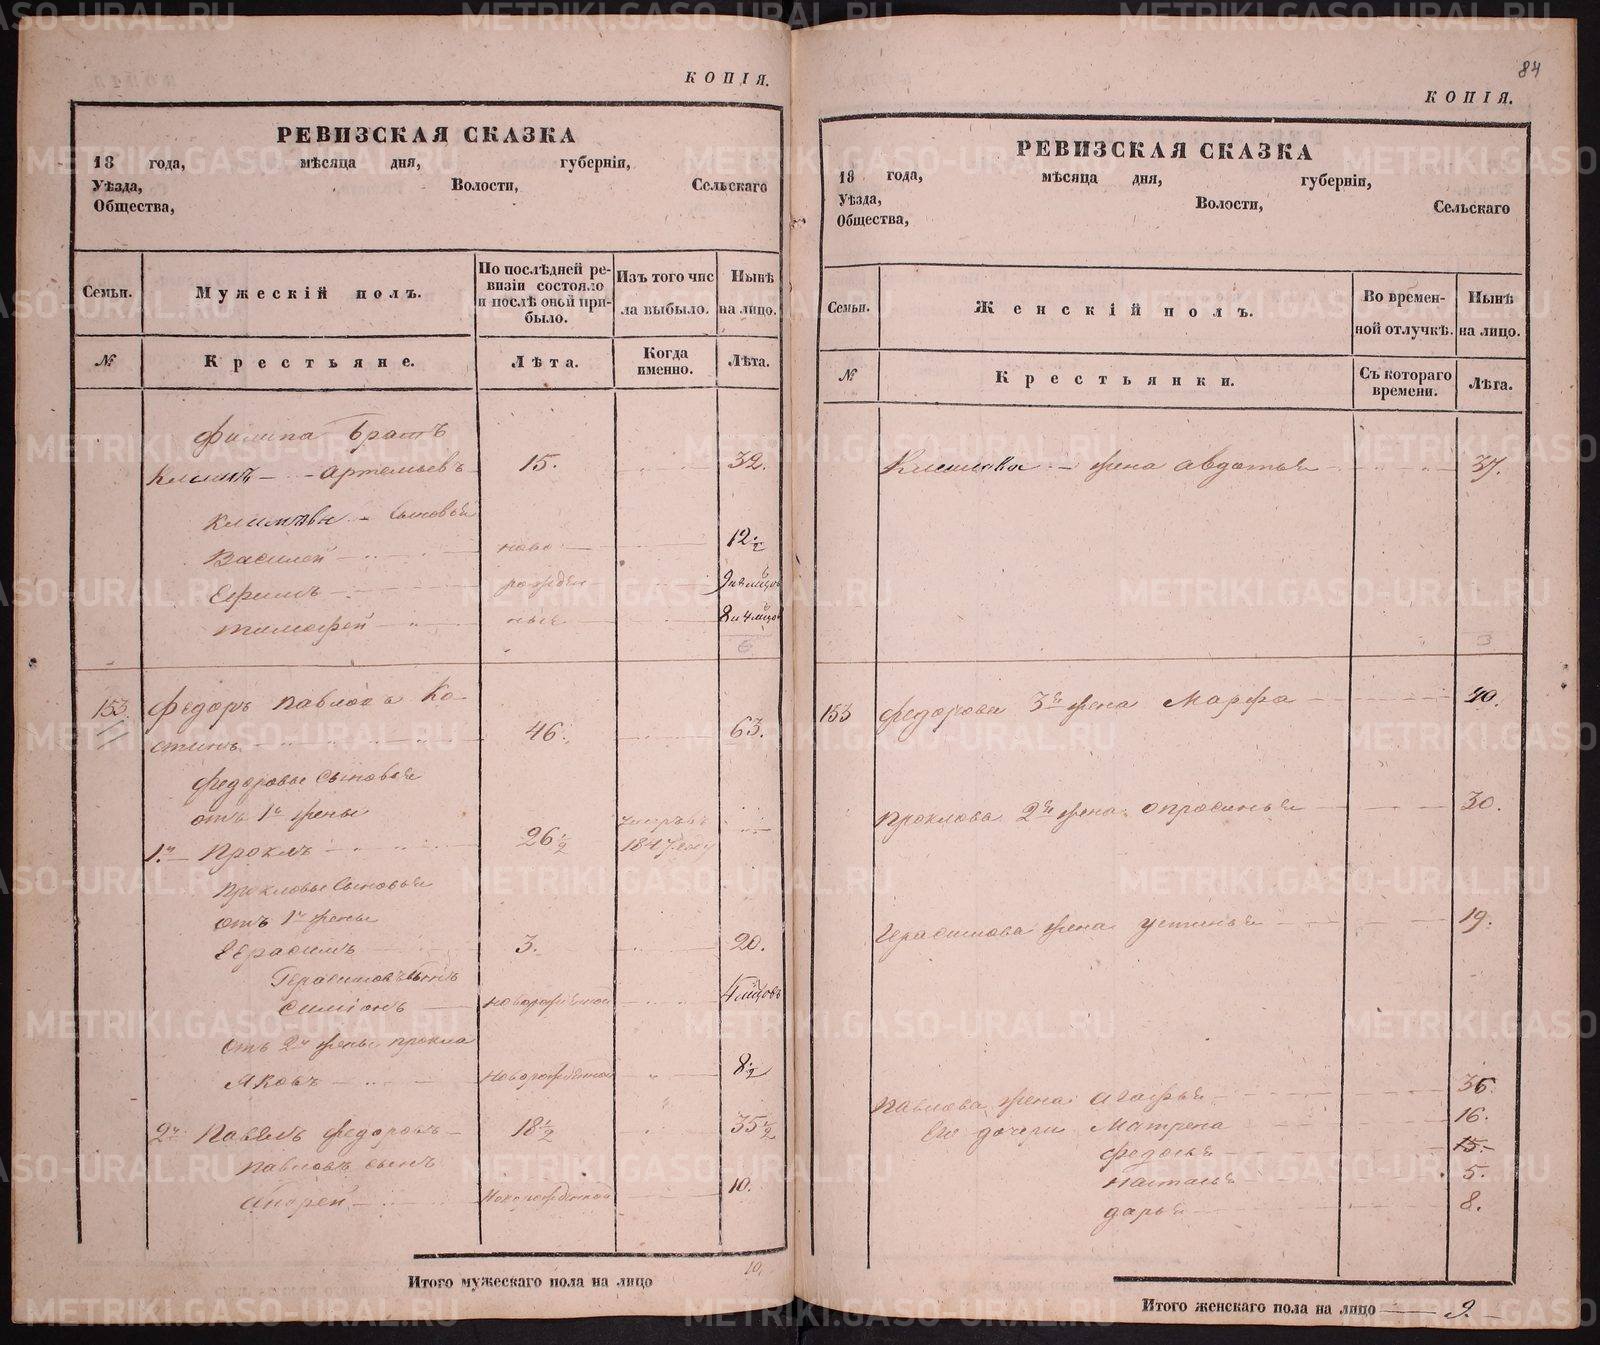 КОПІЯ.
РЕВИЗСКАЯ СКАЗКА
18 года, мѣсяца дня, губерніи,
Уѣзда, Волости, Сельскаго
Общества,
Семьи. Мужескій полъ. По послѣдней ревизіи состояло и послѣ оной прибыло. Изъ того числа выбыло. Нынѣ на лицо.
№ Крестьяне. Лѣта. Когда именно. Лѣта.
Филипа братъ
Климъ Артемьевъ 15. 32.
Климовы сыновья
Василей ново 12½
Ефимъ рожден 9
Тимофей ные 8 и 4 мѣсцов
6
153. Федоръ Павловъ Ко-
стинъ 46. 63.
Федоровы сыновья
отъ 1й жены
1й Проклъ 26½ умеръ въ 1847 году
Прокловы сыновья
отъ 1й жены
Герасимъ 3. 20.
Герасимовъ сынъ
Симіонъ новорожденной 4 мѣсцовъ
отъ 2й жены Прокла
Яковъ новорожденной 8½
2й Павелъ Федоровъ 18½ 35½
Павловъ сынъ
Андрей новорожденной 10.
Итого мужескаго пола на лицо 10.
84
КОПІЯ.
РЕВИЗСКАЯ СКАЗКА
18 года, мѣсяца дня, губерніи,
Уѣзда, Волости, Сельскаго
Общества,
Семьи. Женскій полъ. Во временной отлучкѣ. Нынѣ на лицо.
№ Крестьянки. Съ котораго времени. Лѣта.
Климова жена Авдотья 37.
3
153 Федорова 3я жена Марфа 40.
Проклова 2я жена Опросинья 30.
Герасимова жена Устинья 19.
Павлова жена Агафья 36.
Его дочери Матрена 16.
Федосья 15.
Насталья 5.
Дарья 8.
Итого женскаго пола на лицо 9.
METRIKI.GASO-URAL.RU